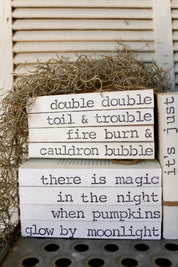 double double
toil & trouble
fire burn &
cauldron bubble
there is magic
in the night
when pumpkins
glow by moonlight
it's just